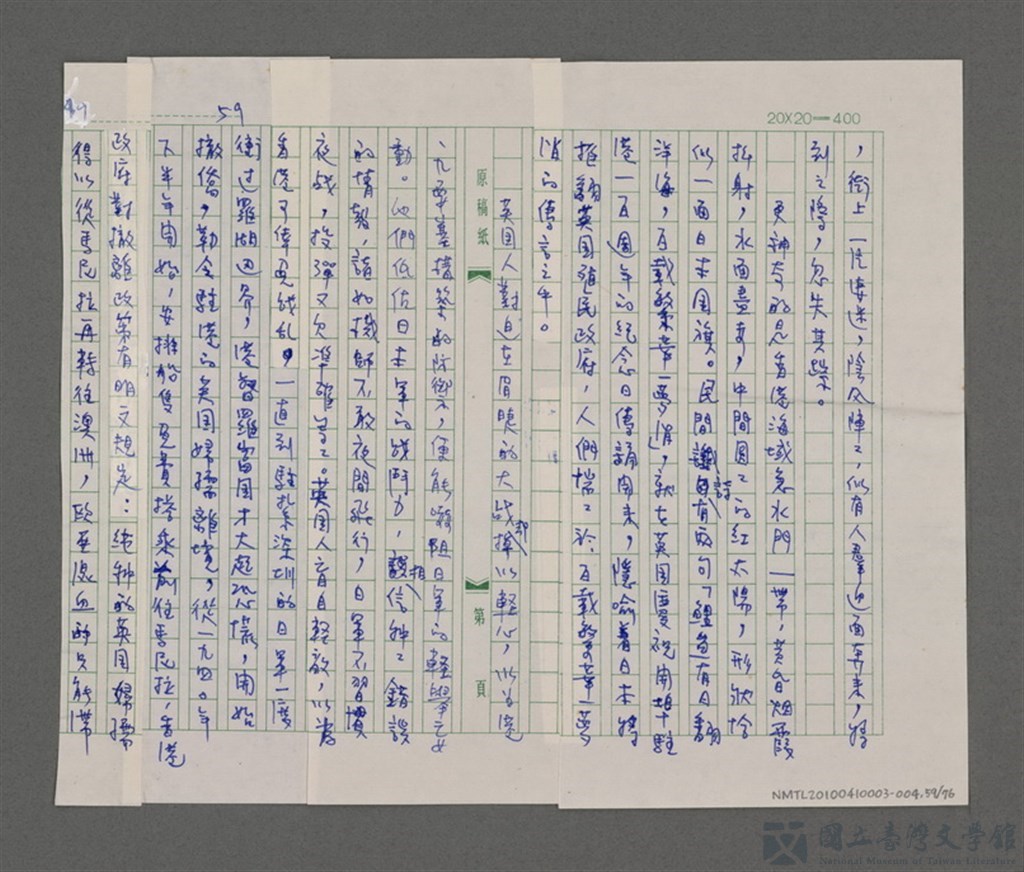 20X20=400
，街上一片凄迷，陰风陣々，似有人羣迎面奔来，将
到之際，忽失其踪。
更神奇的是香港海域急水門一帶，黃昏烟霞
折射，水面晝変，中間圆々的紅太陽，形狀恰
似一面日本国旗。民間讖詩有兩句「鱷魚有日翻
洋海，百載繁華一夢消」，就在英国慶祝開埠駐
港一百週年的紀念日傳誦開来，隱喻着日本將
推翻英国殖民政府，人們惴々於百載繁華一夢
消的傳言之中。
英国人對迫在眉睫的大战掉以輕心，以为港
九
防禦，便能嚇阻日軍的輕舉之
動。他們低估日本军的战鬥力，相信种々錯誤
的情報，諸如機師不敢夜間飛行，日軍不習慣
夜战，投彈又欠準確等々。英国人盲目輕敵，以为
香港可倖免战乱，一直到駐扎深圳的日軍一度
衝过羅湖边界，港督羅富国才大起恐慌，開始
撤僑，勒令駐港的英国婦孺離境，從一九四〇年
下半年開始，安排船隻免費搭乘前往馬尼拉，香港
政府對撤離政策有明文規定：純种的英国婦孺
得以從馬尼拉再轉往澳洲，歐亚混血的只能帶
59
原稿紙
第 頁
NMTL20100410003-004.59/76
國立臺灣文學館
National Museum of Taiwan Literature